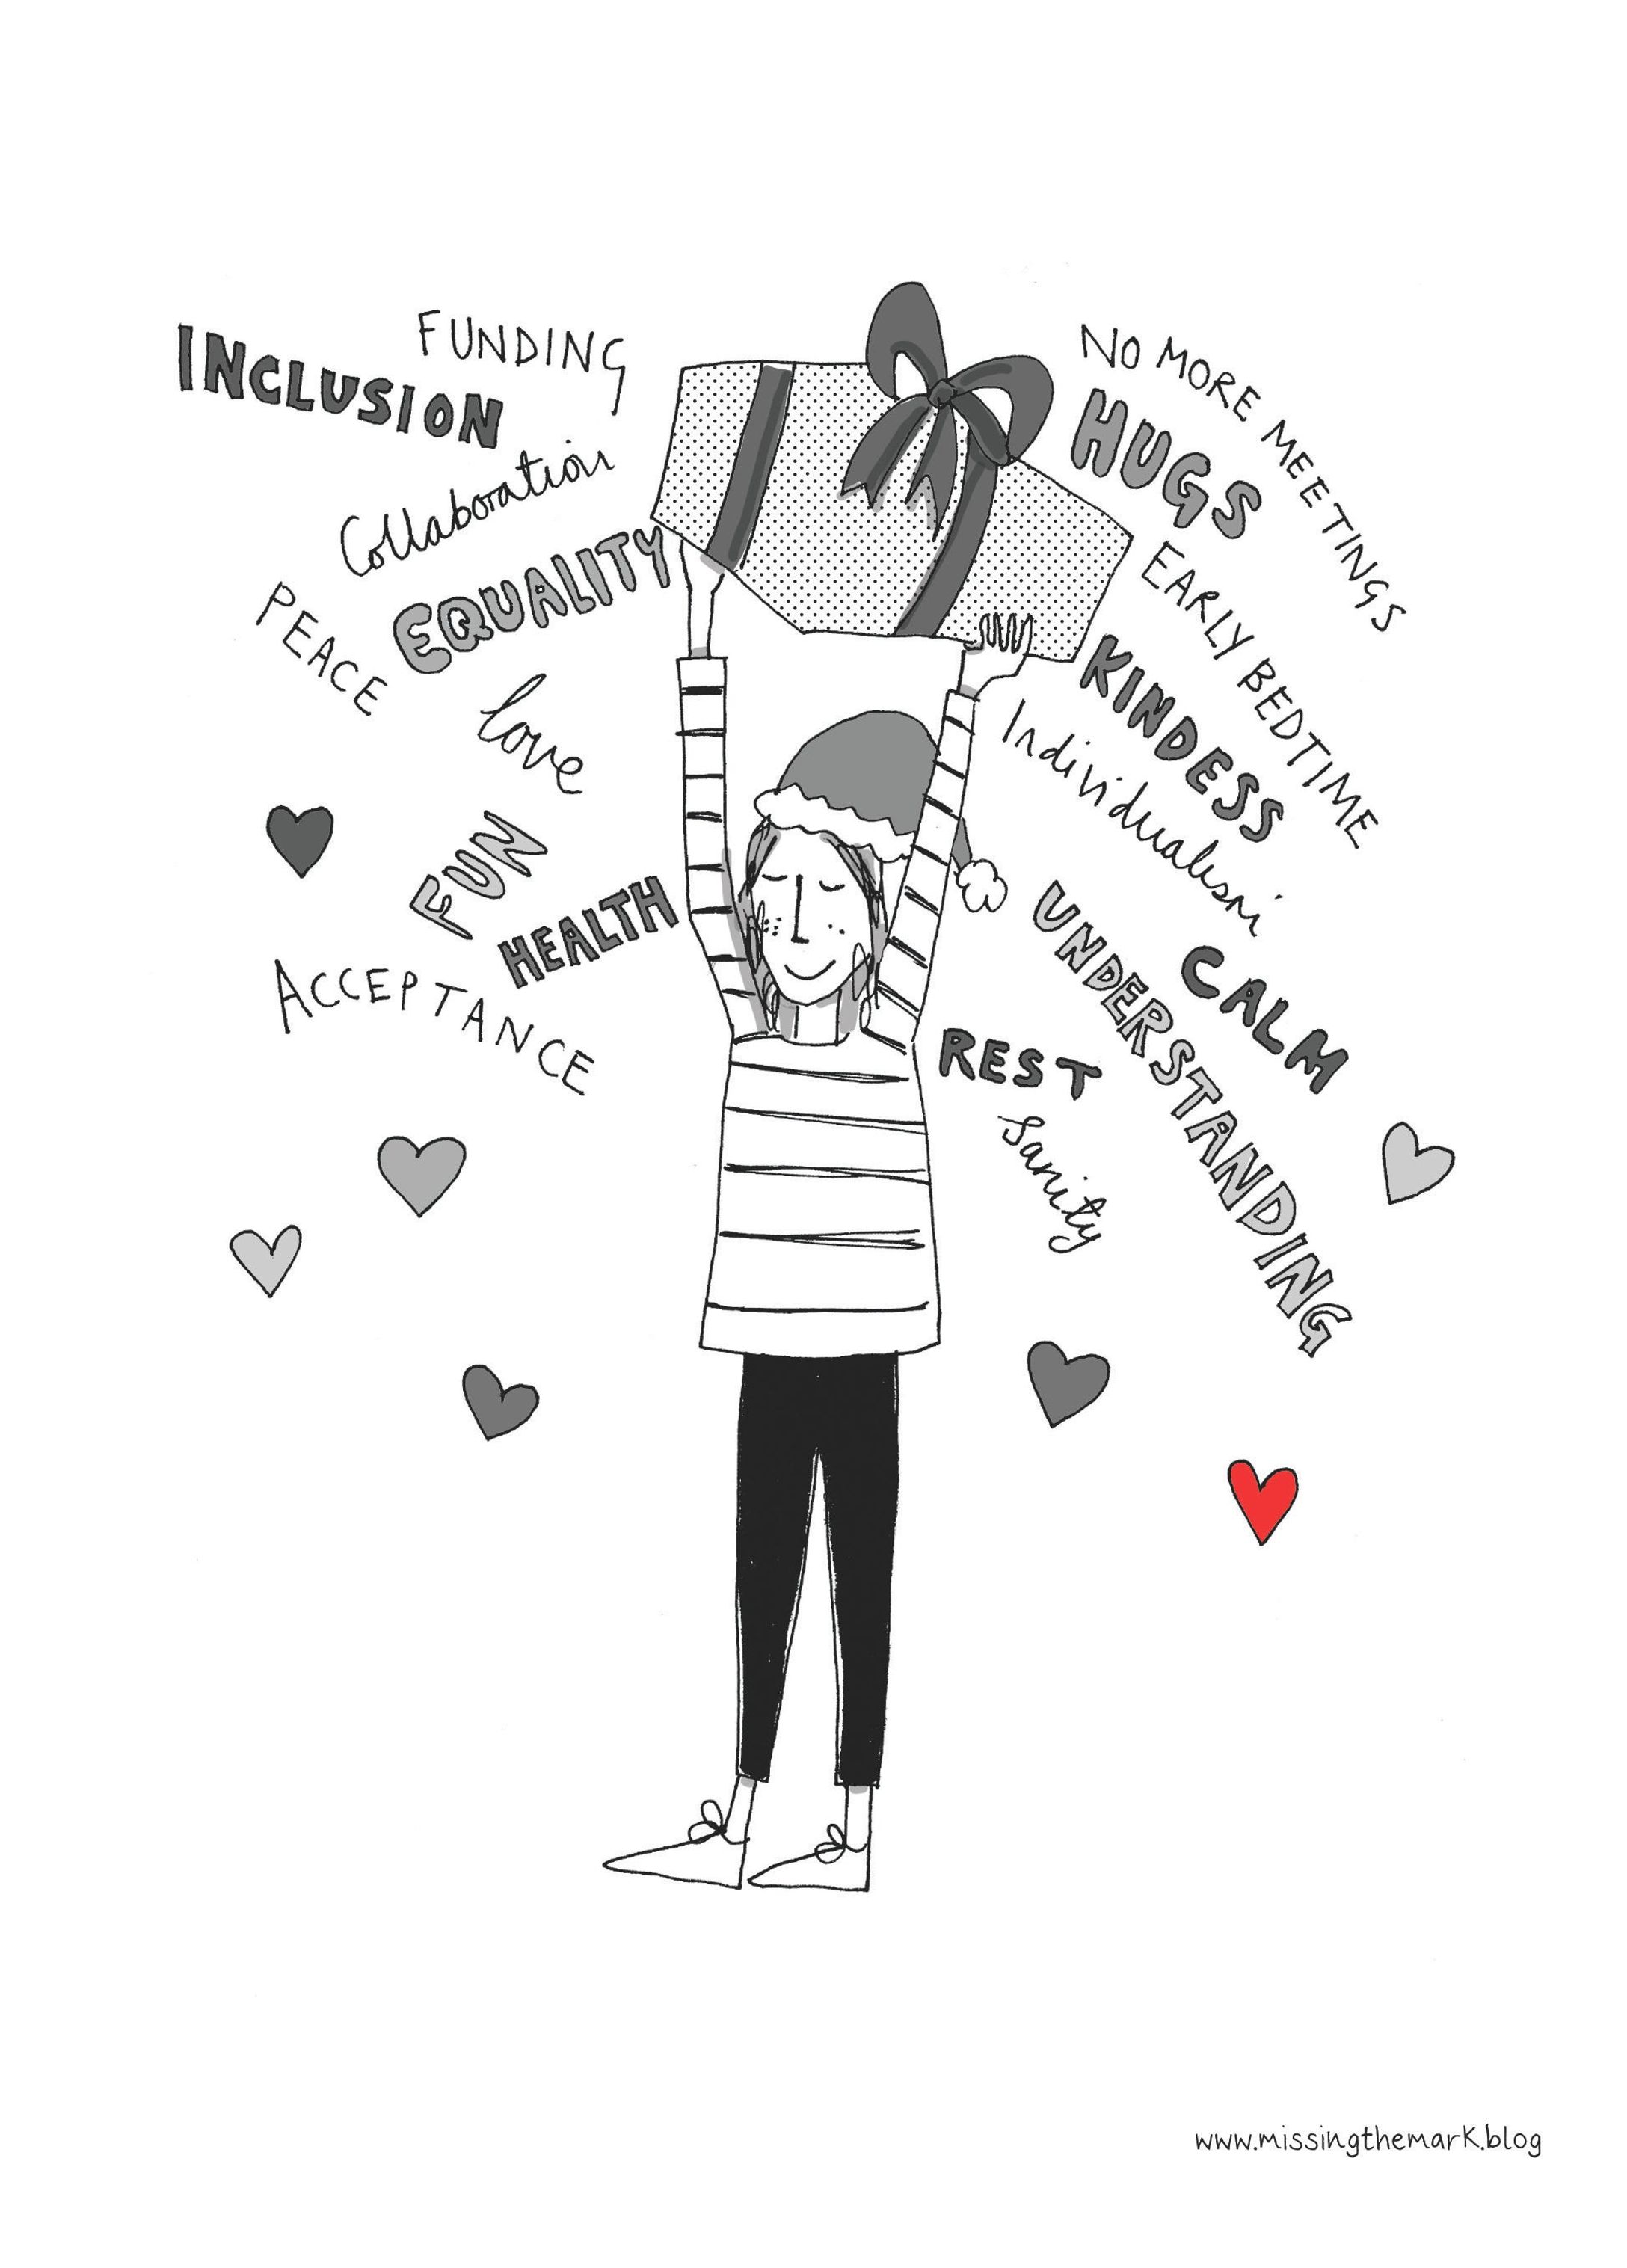 FUNDING
INCLUSION
Collaboration
EQUALITY
PEACE
love
FUN
HEALTH
ACCEPTANCE
NO MORE MEETINGS
HUGS
EARLY BEDTIME
KINDESS
Individualism
UNDERSTANDING
CALM
REST
Sanity
www.missingthemark.blog